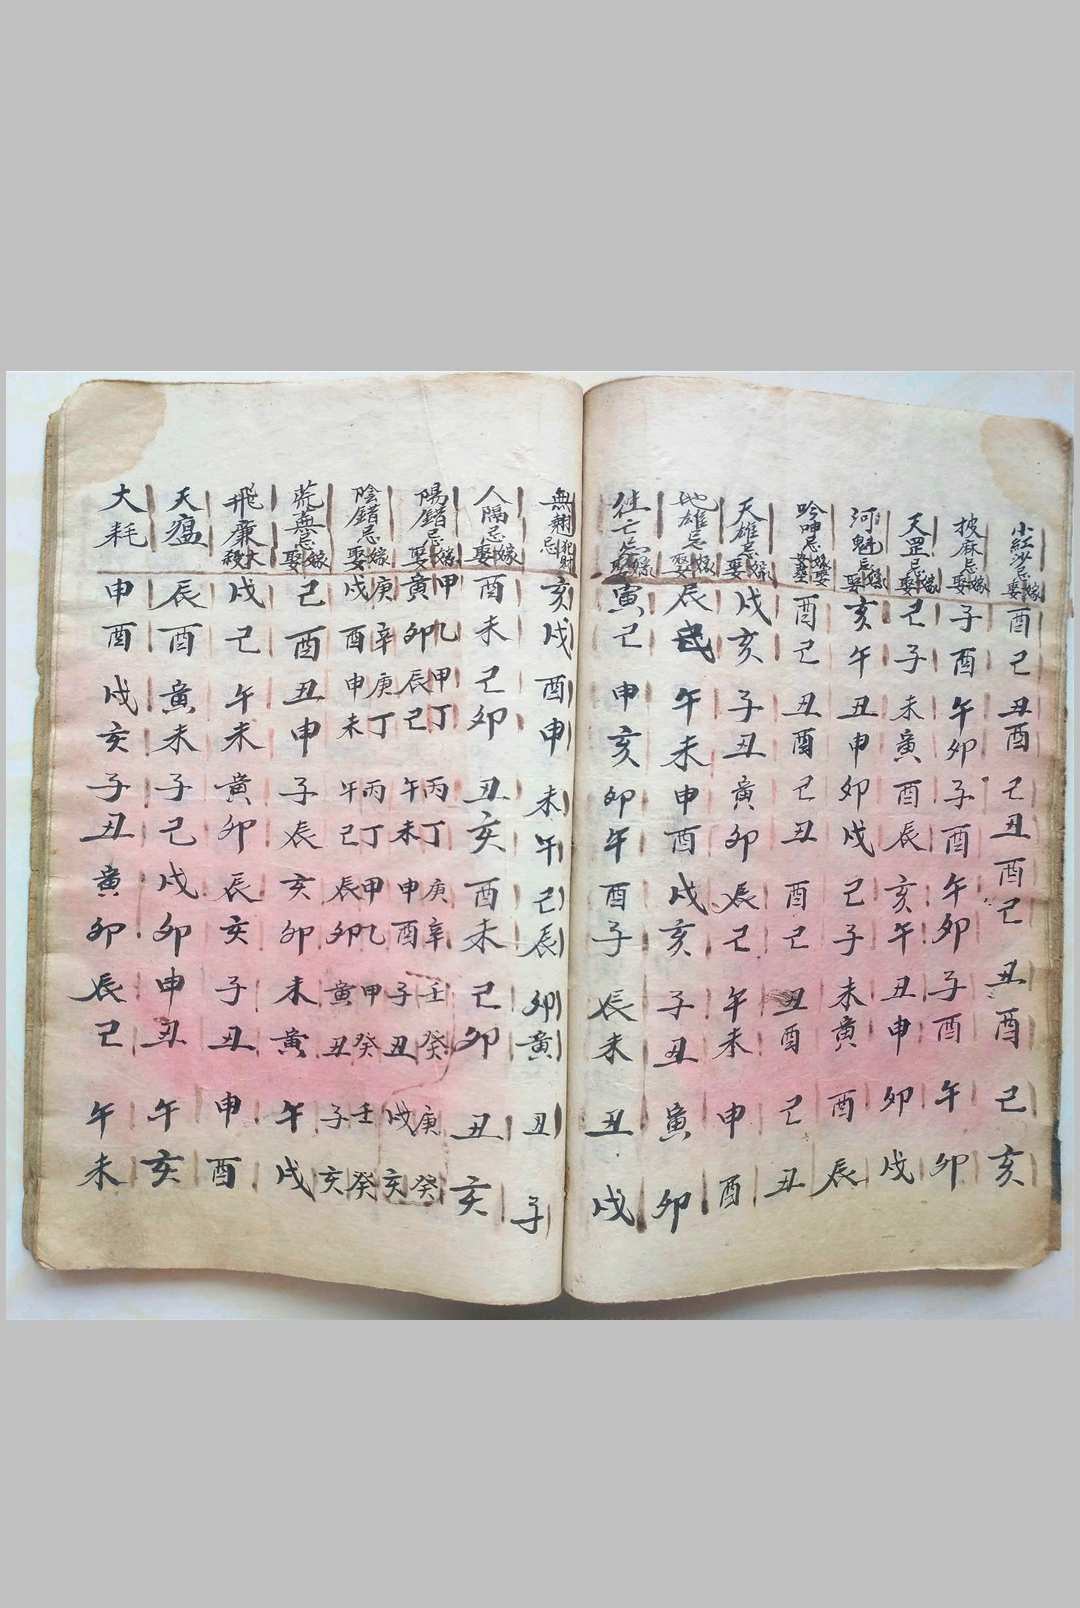 小紅沙忌嫁娶酉己丑酉己丑酉己丑酉己亥
披麻忌嫁娶子酉午卯子酉午卯子酉午卯
天罡忌嫁娶己子未寅酉辰亥午丑申卯戌
河魁忌嫁娶亥午丑申卯戌己子未寅酉辰
吟呻忌嫁娶酉己丑酉己丑酉己丑酉己丑
天雄忌嫁娶戌亥子丑寅卯辰己午未申酉
地雄忌嫁娶辰午未申酉戌亥子丑寅卯
往亡忌嫁娶寅己申亥卯午酉子辰未丑戌
無翹忌犯財亥戌酉申未午己辰卯寅丑子
人隔忌嫁娶酉未己卯丑亥酉未己卯丑亥
陽錯忌嫁娶甲寅乙卯甲辰丁己丙午丁未庚申辛酉壬子癸丑庚戌癸亥
陰錯忌嫁娶庚戌辛酉庚申丁未丙午丁己甲辰乙卯甲寅癸丑壬子癸亥
荒無忌嫁娶己酉丑申子辰亥卯未寅午戌
飛廉大殺戌己午未寅卯辰亥子丑申酉
天瘟辰酉寅未子己戌卯申丑午亥
大耗申酉戌亥子丑寅卯辰己午未